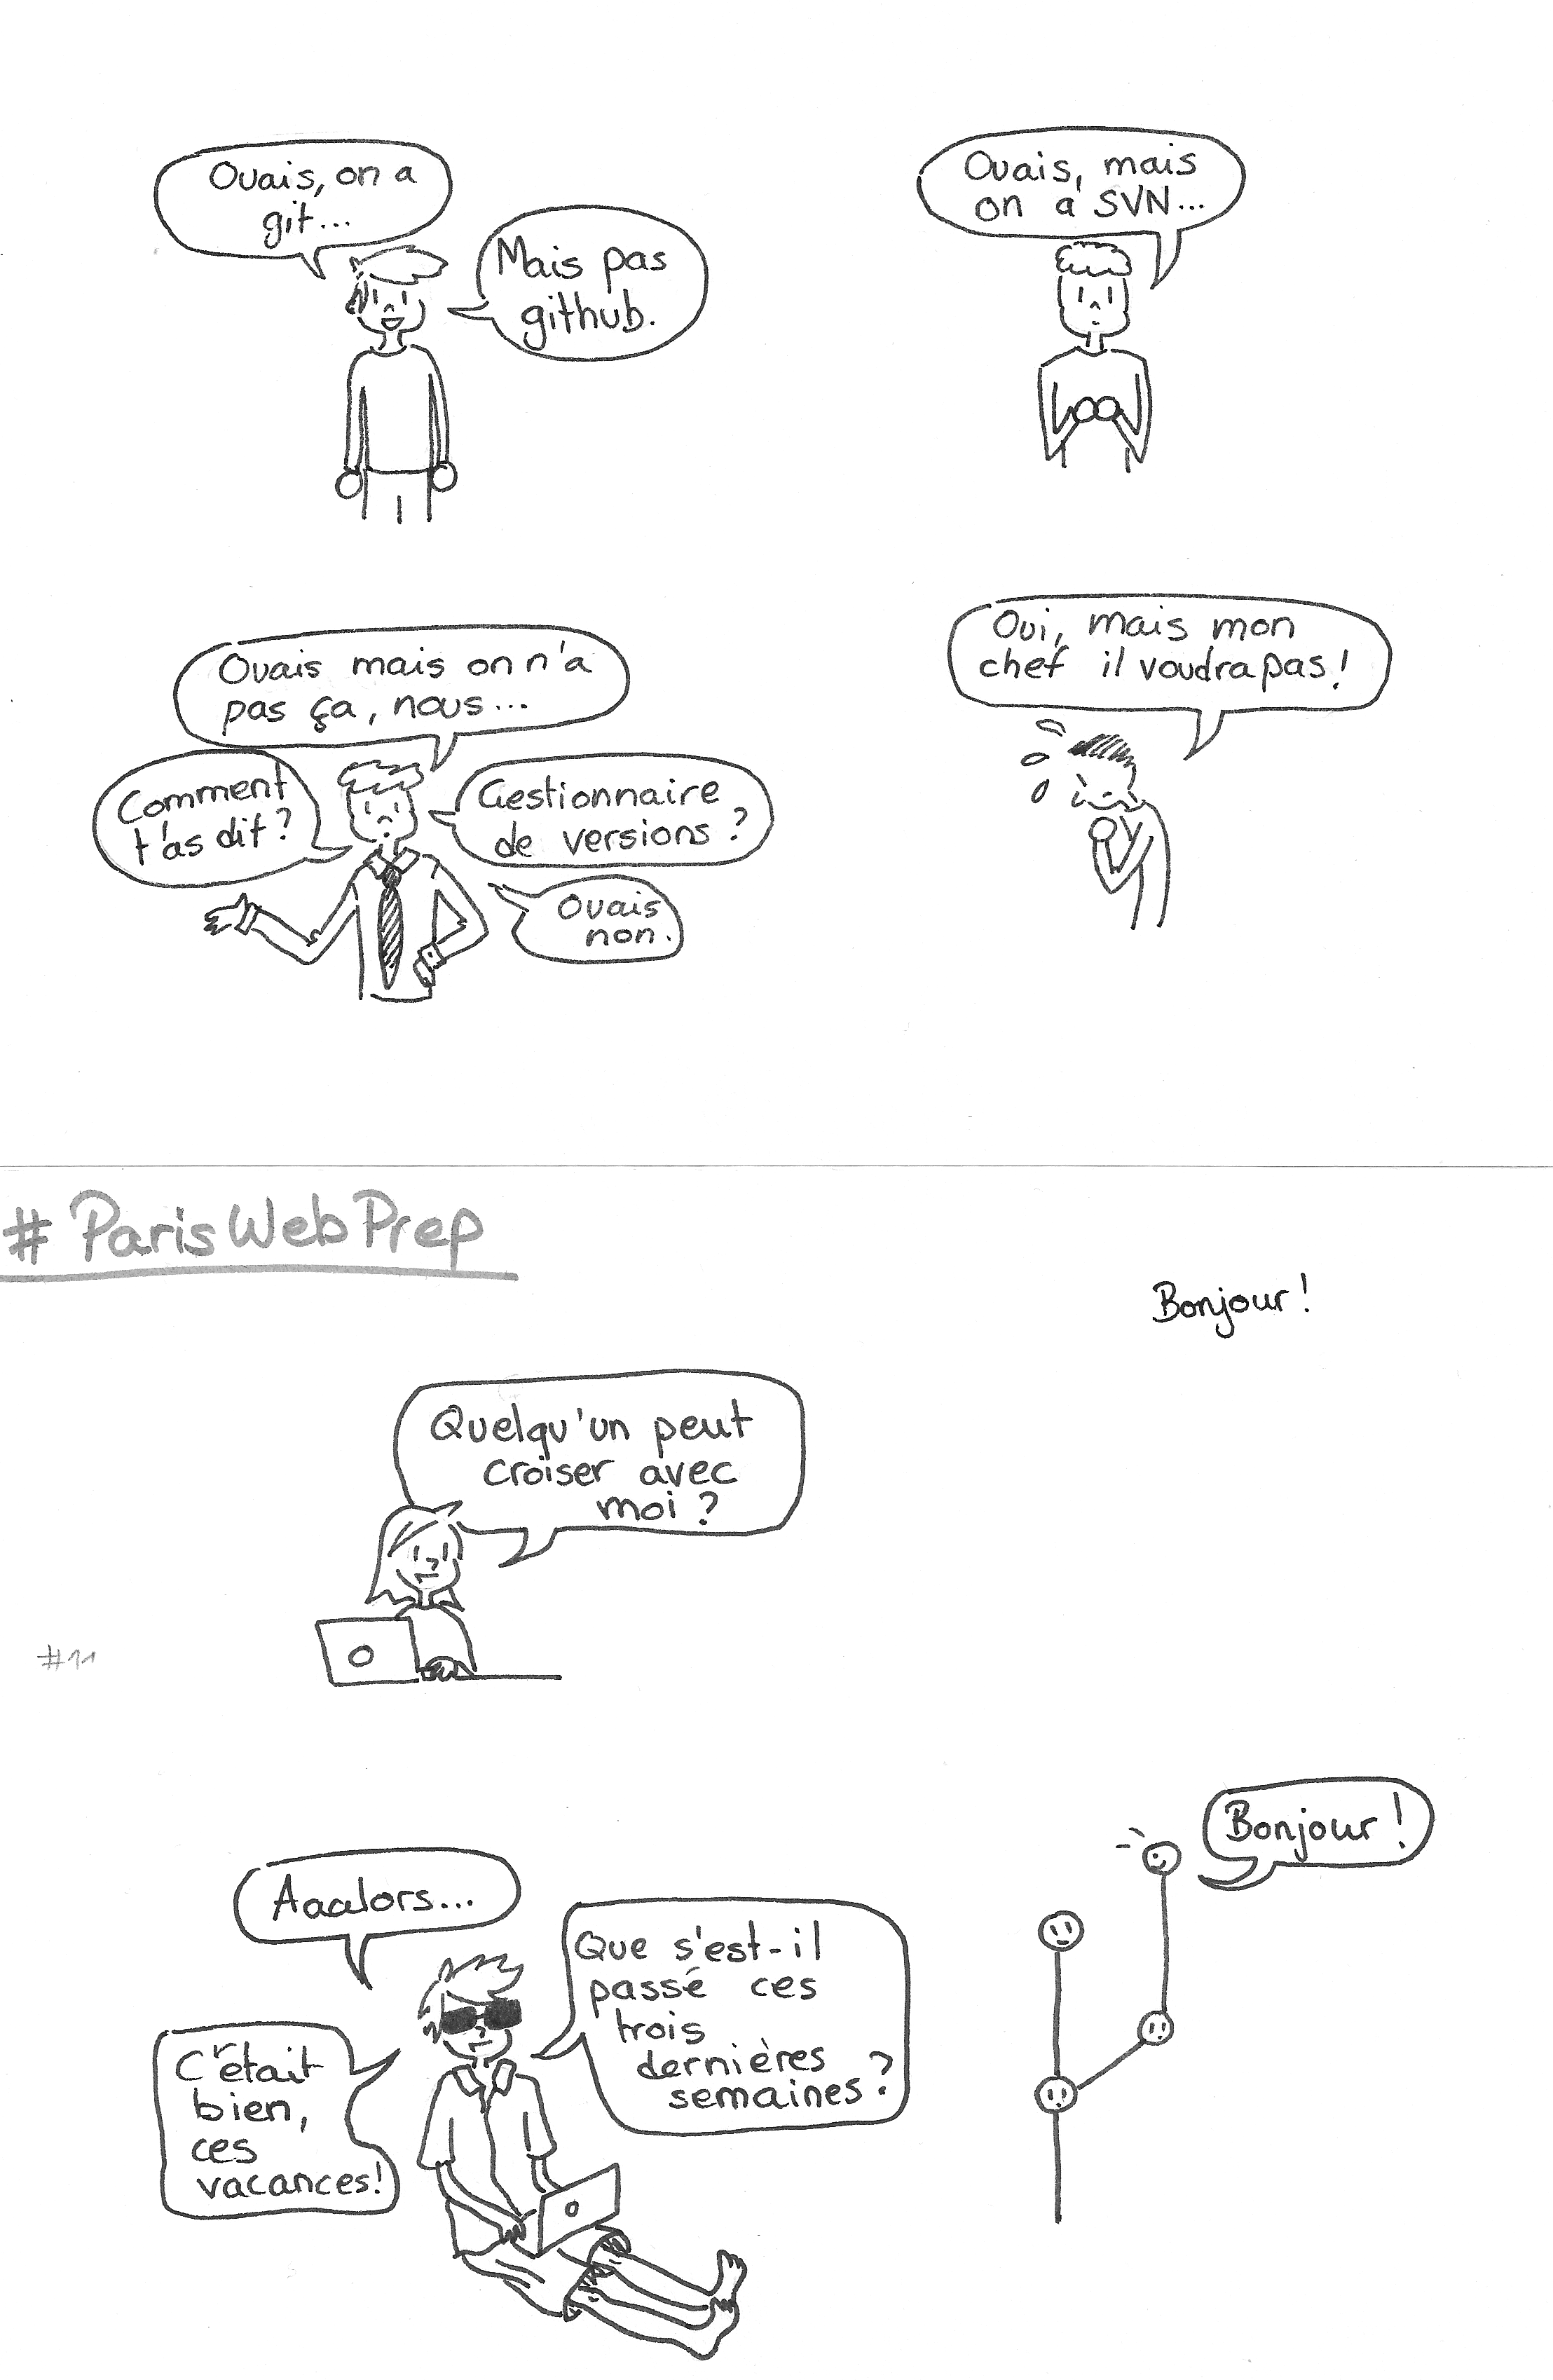 Ouais, on a
git...
Mais pas
github.
Ouais, mais
on a SVN...
Ouais mais on n'a
pas ça, nous...
Comment
t'as dit?
Gestionnaire
de versions ?
Ouais
non.
Oui, mais mon
chef il voudra pas!
# ParisWebPrep
Bonjour!
Quelqu'un peut
croiser avec
moi ?
#11
Aaalors...
Que s'est-il
passé ces
trois
dernières
semaines ?
C'était
bien,
ces
vacances!
Bonjour!